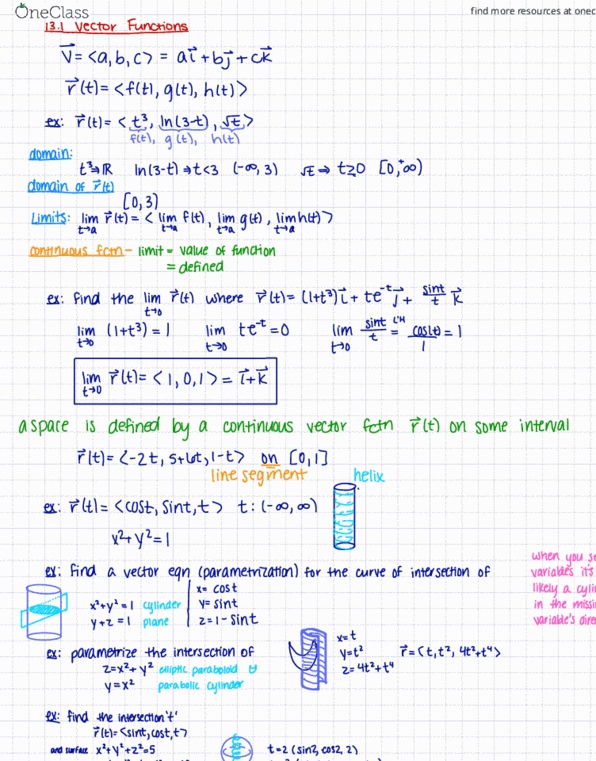 OneClass
find more resources at onec
13.1 Vector Functions
v⃗ = <a, b, c> = ai⃗ + bj⃗ + ck⃗
r⃗(t) = <f(t), g(t), h(t)>
ex: r⃗(t) = <t³, ln(3-t), √t>
f(t), g(t), h(t)
domain:
t³ ⇒ ℝ ln(3-t) ⇒ t<3 (-∞, 3) √t ⇒ t≥0 [0, +∞)
domain of r⃗(t)
[0, 3)
Limits: lim t→a r⃗(t) = <lim t→a f(t), lim t→a g(t), lim t→a h(t)>
continuous fctn - limit = value of function
= defined
ex: find the lim t→0 r⃗(t) where r⃗(t) = (1+t³)i⃗ + te⁻ᵗj⃗ + sint/t k⃗
lim t→0 (1+t³) = 1 lim t→0 te⁻ᵗ = 0 lim t→0 sint/t L'H = cos(t)/1 = 1
lim t→0 r⃗(t) = <1, 0, 1> = i⃗ + k⃗
a space is defined by a continuous vector fctn r⃗(t) on some interval
r⃗(t) = <-2t, 5+6t, 1-t> on [0, 1]
line segment
helix
ex: r⃗(t) = <cost, sint, t> t: (-∞, ∞)
x² + y² = 1
ex: find a vector eqn (parametrization) for the curve of intersection of
x² + y² = 1 cylinder
y + z = 1 plane
x = cost
y = sint
z = 1 - sint
when you se
variables it's
likely a cylin
in the missin
variable's dire
ex: parametrize the intersection of
z = x² + y² elliptic paraboloid
y = x² parabolic cylinder
x = t
y = t²
z = 4t² + t⁴
r⃗ = <t, t², 4t² + t⁴>
ex: find the intersection 't'
r⃗(t) = <sint, cost, t>
and surface x² + y² + z² = 5
t = 2 (sin2, cos2, 2)